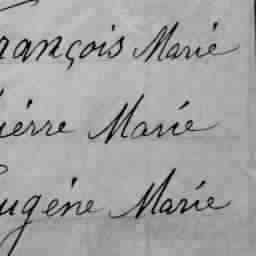 rançois Marie
ierre Marie
ugéne Marie